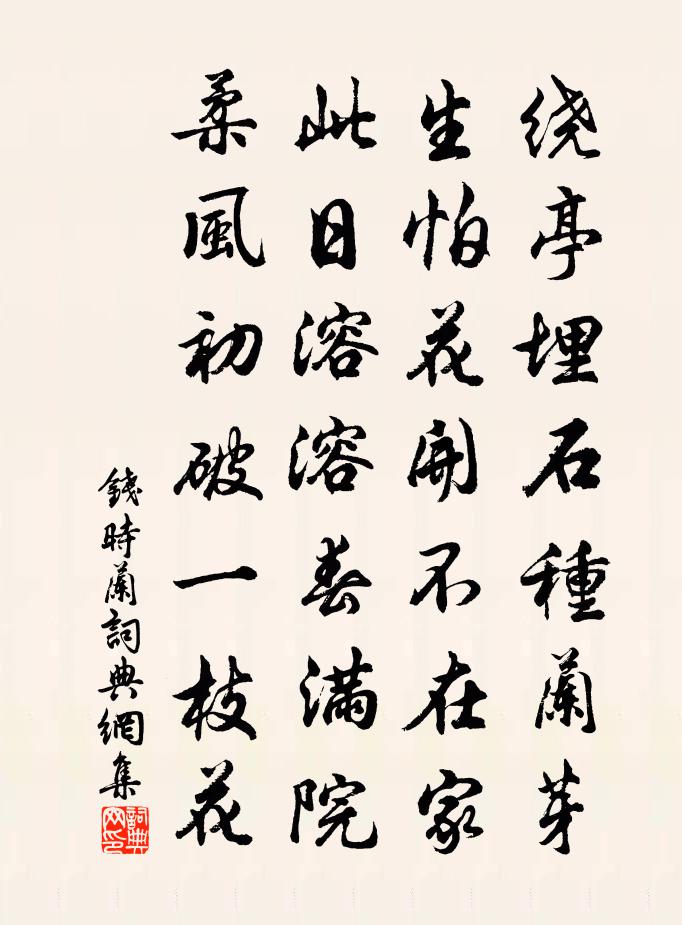 绕亭埋石種蘭芽
生怕花開不在家
此日溶溶春滿院
柔風初破一枝花
錢時蘭詞典網集
詞典網印